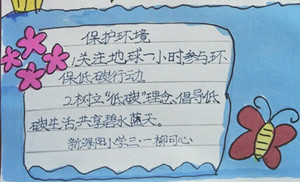 保护环境
1.关注地球一小时参与环
保低碳行动.
2.树立“低碳”理念,倡导低
碳生活,共享碧水蓝天。
新泽阳小学三·一柳可心